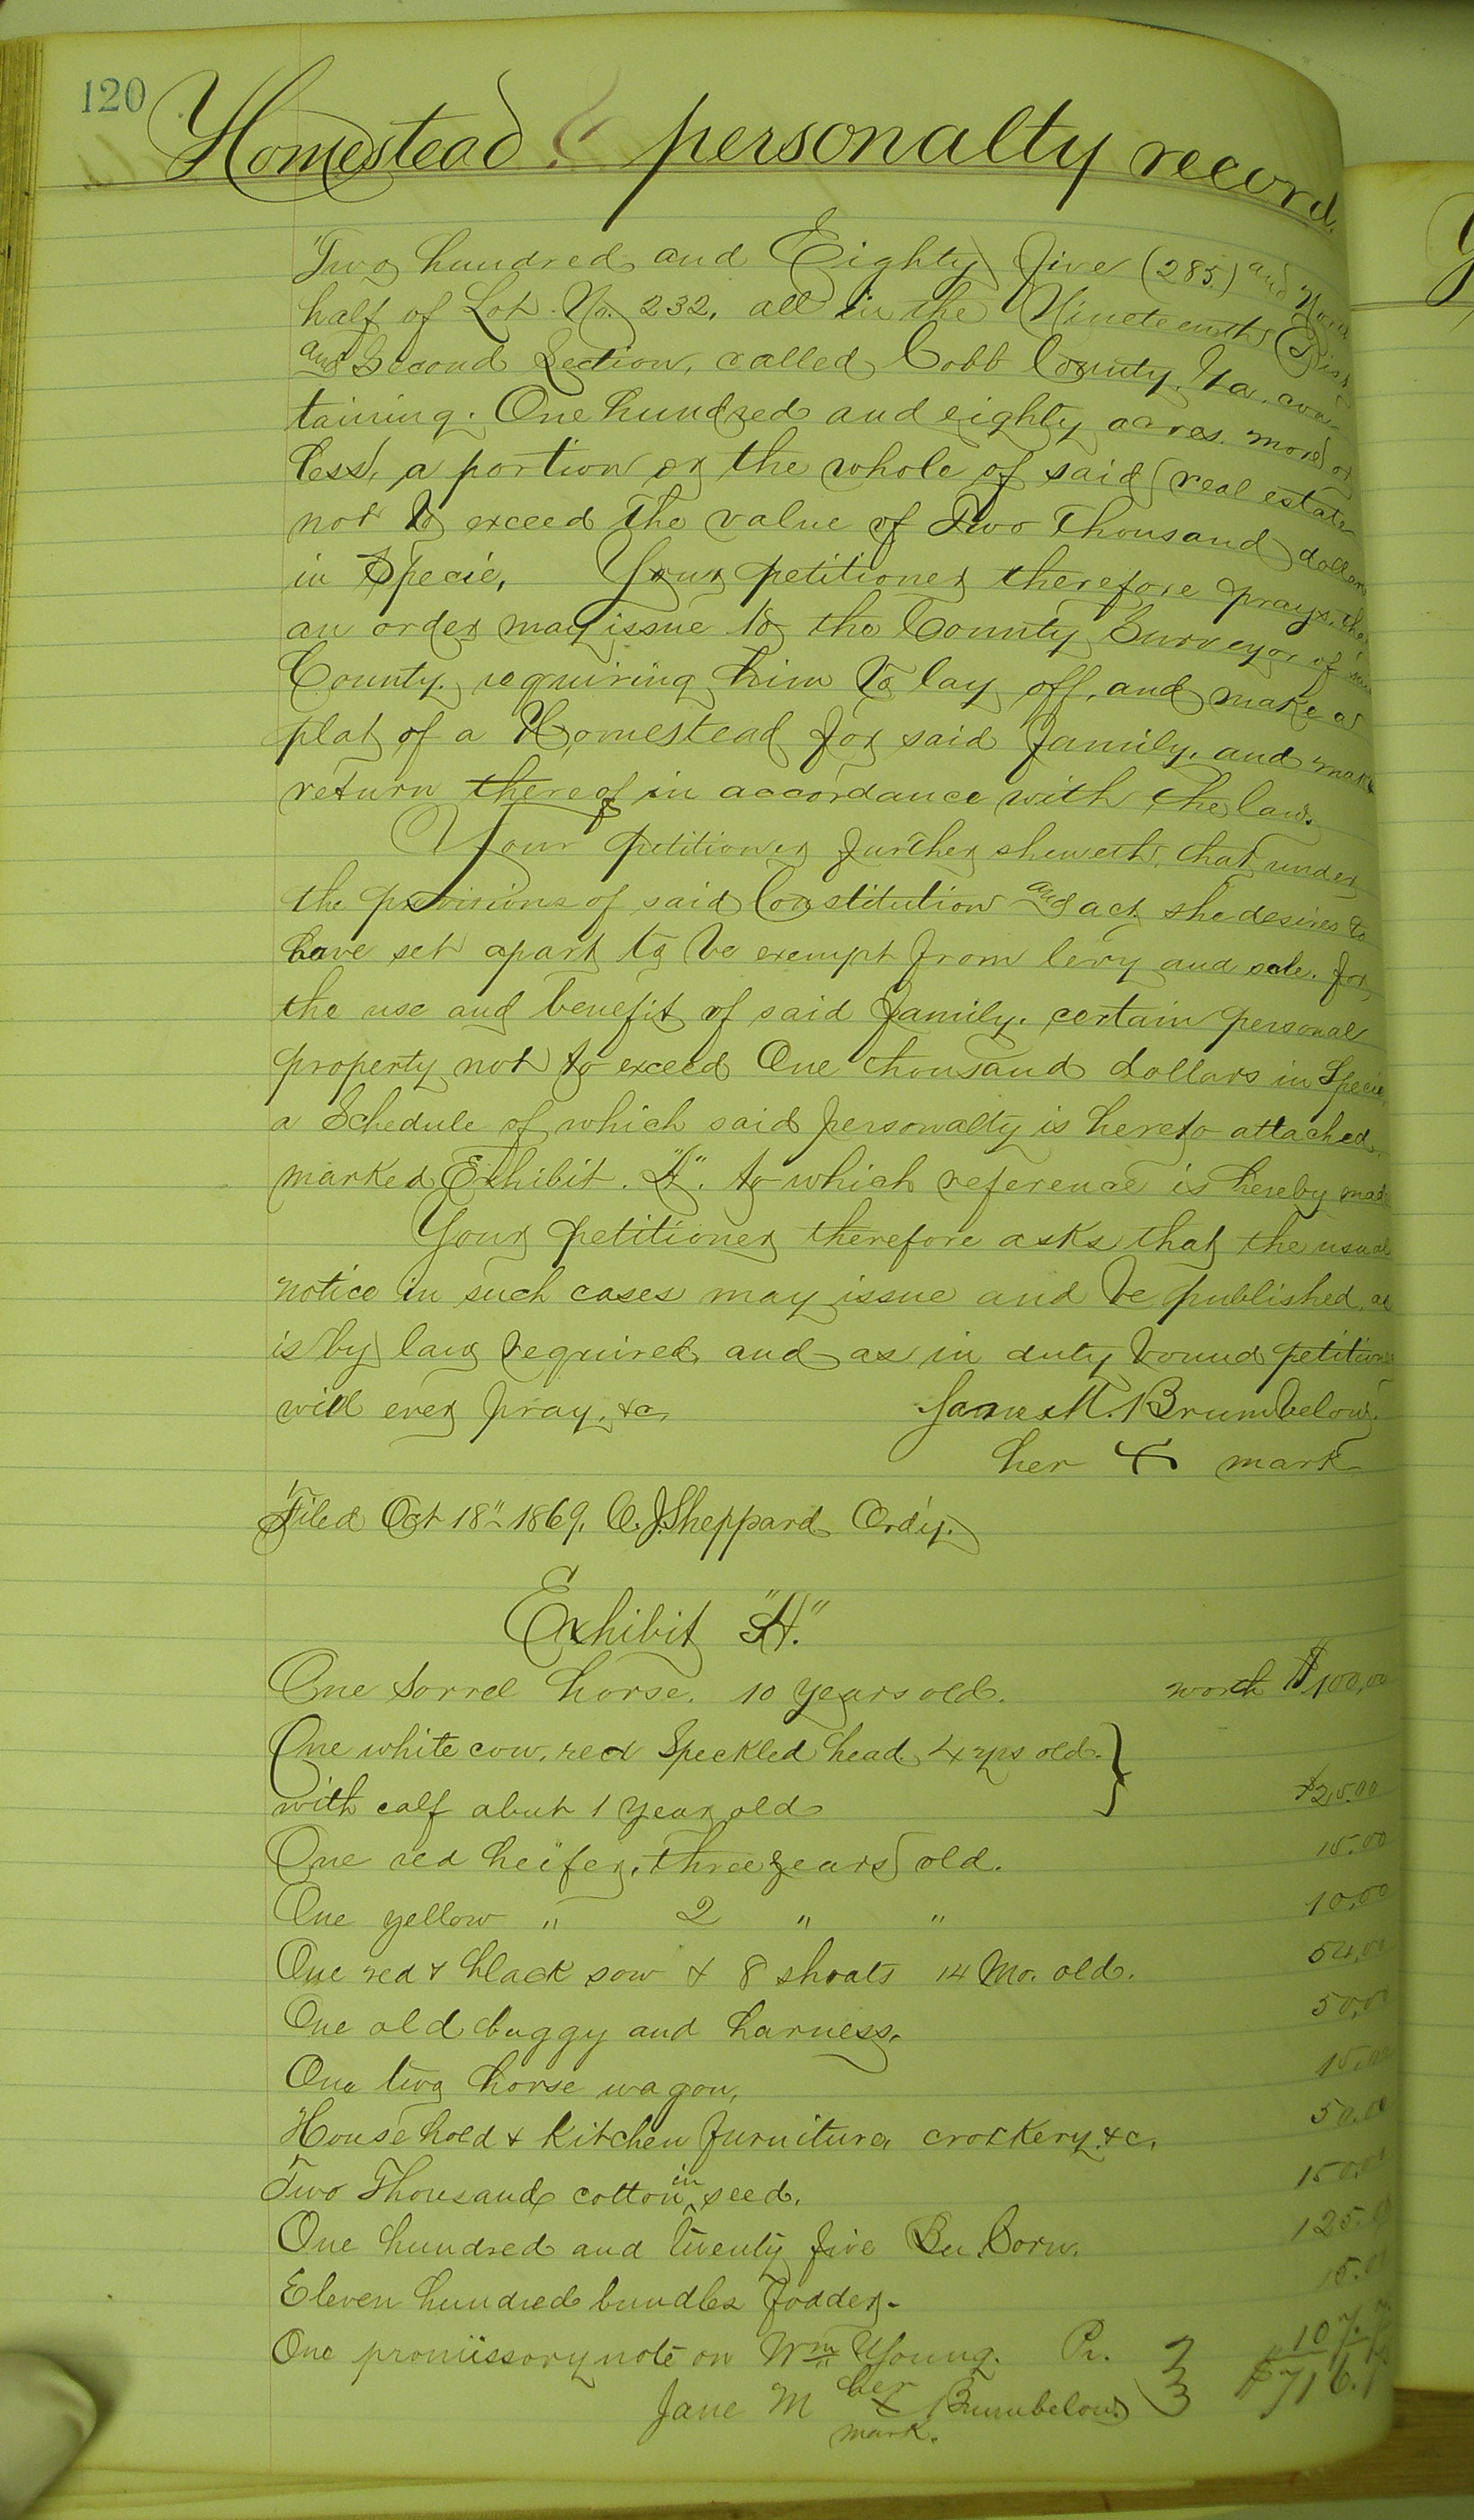 120
Homestead & personalty record.
Two hundred and Eighty five (285) and North
half of Lot No. 232, all in the Nineteenth Dist
and Second Section, called Cobb County, Ga. con-
taining. One hundred and eighty acres. more or
less, a portion or the whole of said real estate
not to exceed the value of Two Thousand dollars
in Specie. Your petitioner therefore prays, that
an order may issue to the County Surveyor of said
County. requiring him to lay off, and make a
plat of a Homestead for said family, and make
return thereof in accordance with the law.
Your petitioner further sheweth, that under
the provisions of said Constitution and act she desires to
have set apart to be exempt from levy and sale. for
the use and benefit of said family. certain personal
property not to exceed One thousand dollars in Specie
a Schedule of which said personalty is hereto attached.
marked Exhibit. "A". to which reference is hereby made
Your petitioner therefore asks that the usual
notice in such cases may issue and be published, as
is by law required and as in duty bound petitioner
will ever pray, &c. Jane M. Brumbelow.
her + mark
Filed Oct 18th 1869. C. J. Sheppard Ordy.
Exhibit "A."
One Sorrel horse. 10 years old. worth $100,00
One white cow, red Speckled head. 4 yrs old. }
with calf abut 1 year old $25.00
One red heifer, three years old. 15.00
One yellow " 2 " " 10,00
One red & black sow & 8 shoats 14 Mo. old. 54,00
One old buggy and harness. 50,00
One two horse wagon, 15,00
House hold & Kitchen furniture crockery &c. 50.00
Two Thousand cotton in seed. 150.00
One hundred and twenty five Bu. Corn. 125.00
Eleven hundred bundles fodder. 15.00
One promissory note on Wm Young. Pr. 107.
Jane M her x mark. Brumbelow $716.